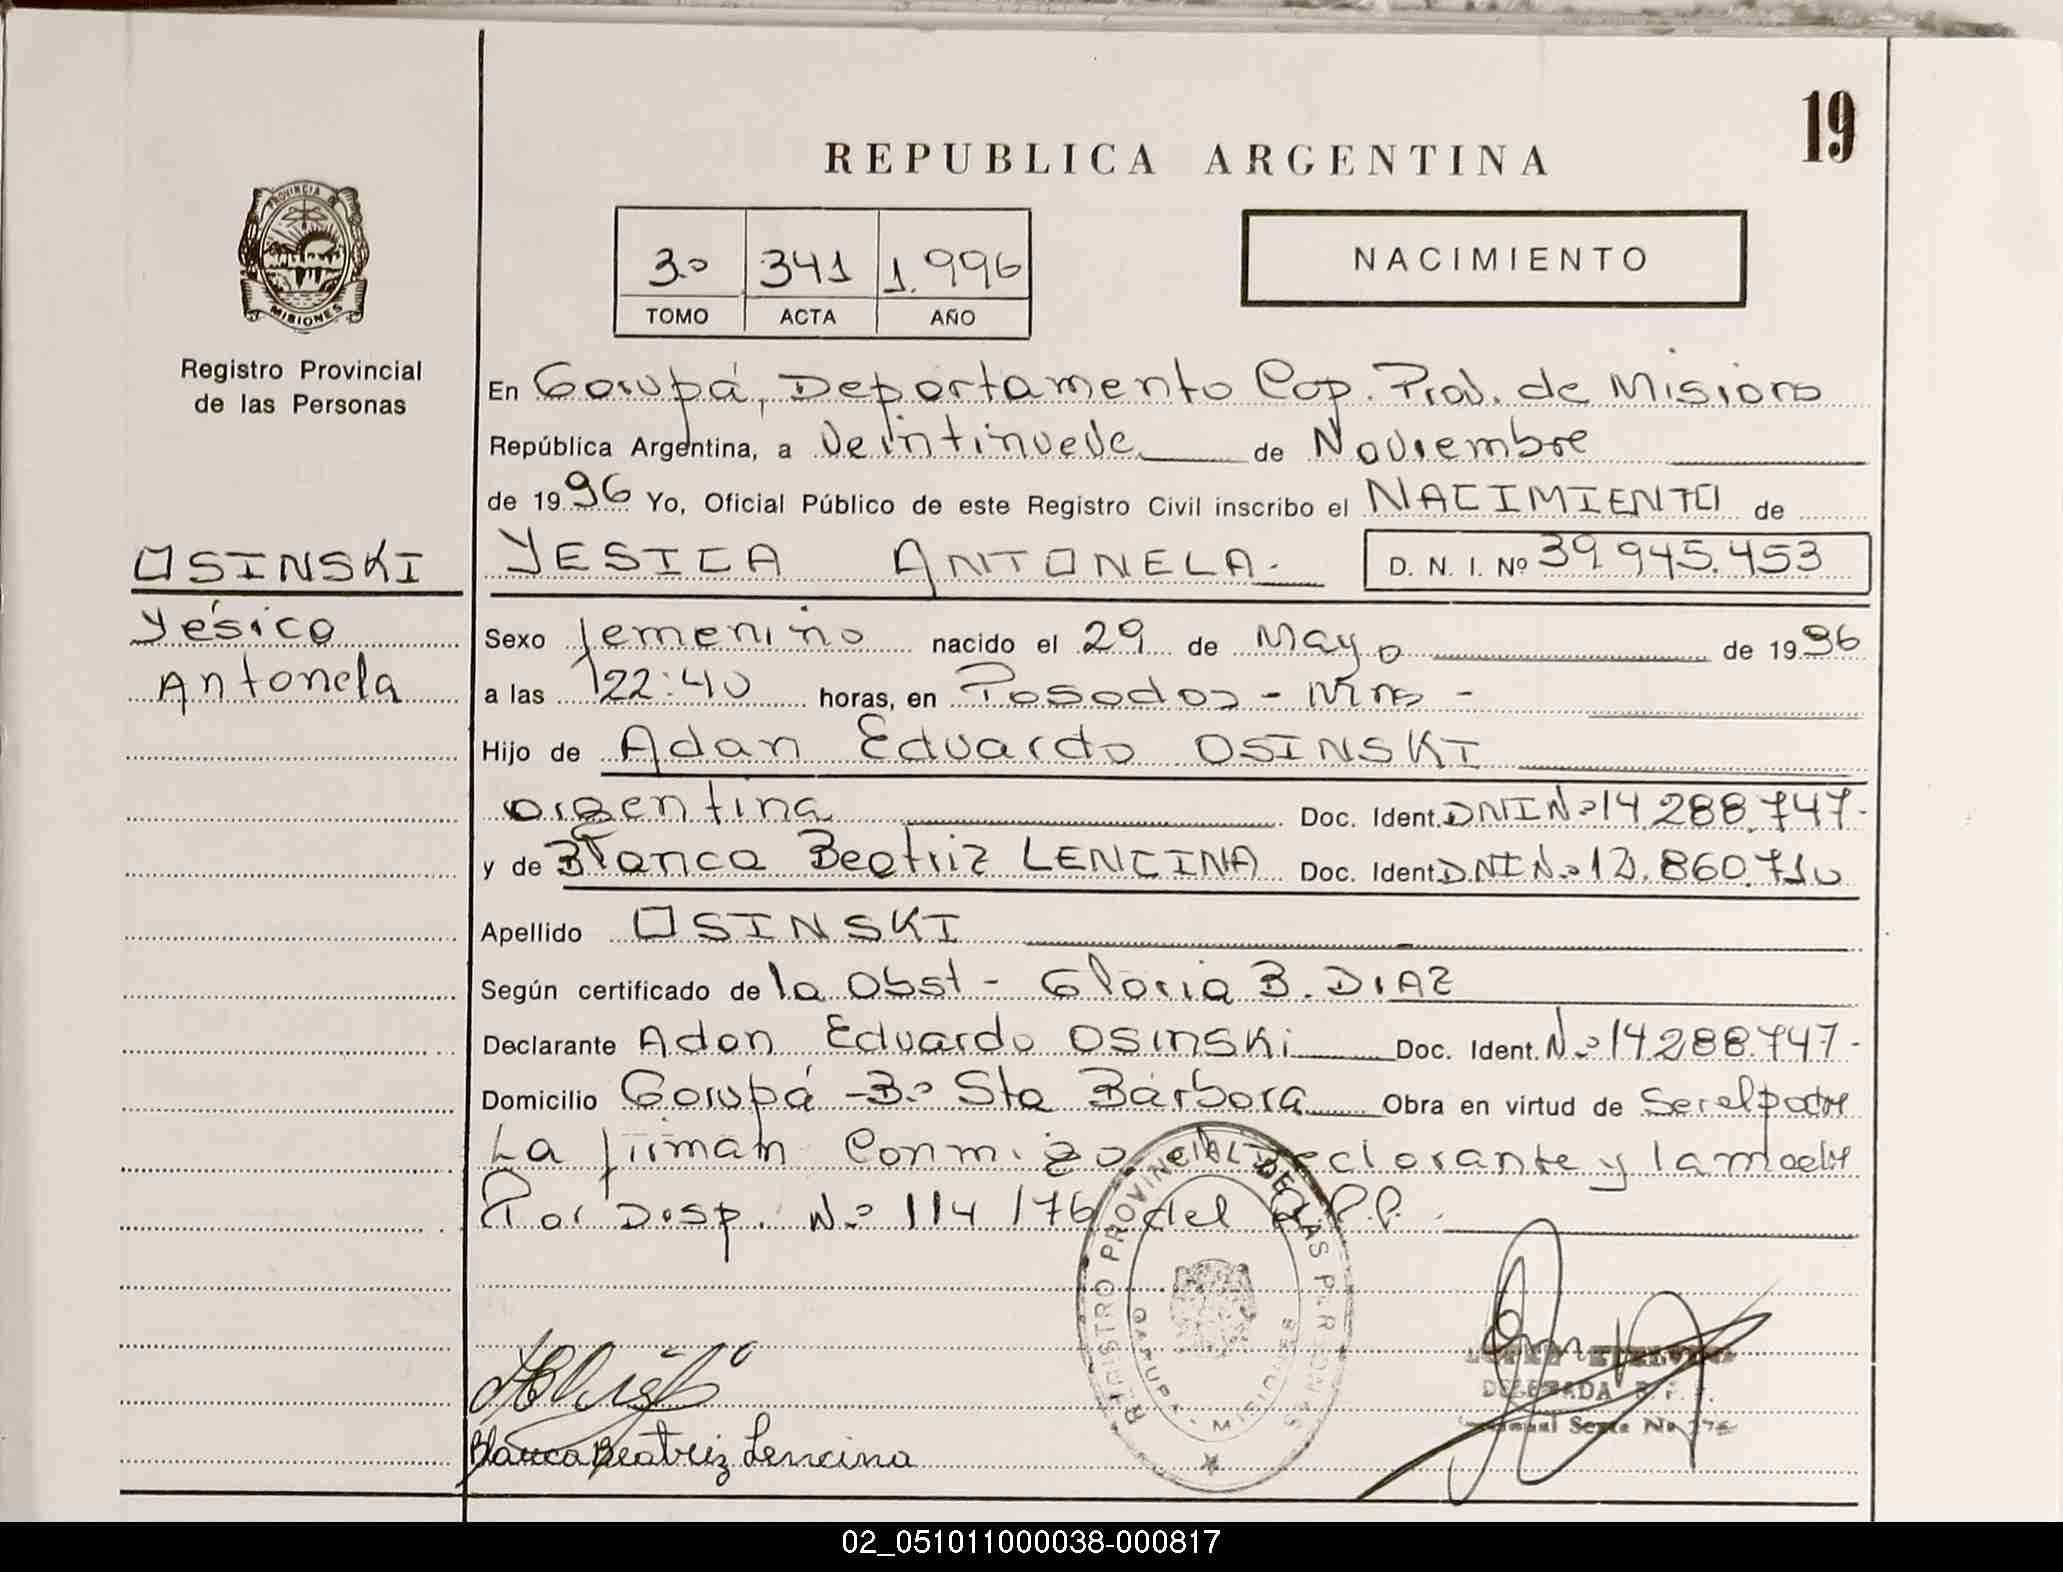 19
REPUBLICA ARGENTINA
PROVINCIA DE
MISIONES
3º 341 1.996
TOMO ACTA AÑO
NACIMIENTO
Registro Provincial
de las Personas
En Garupá, Departamento Cap. Prov. de Misions
República Argentina, a Veintinueve de Noviembre
de 1996 Yo, Oficial Público de este Registro Civil inscribo el NACIMIENTO de
OSINSKI YESICA ANTONELA. D. N. I. Nº 39.945.453
Yésica
Antonela
Sexo femenino nacido el 29 de Mayo de 1996
a las 22:40 horas, en Posadas - Mns -
Hijo de Adan Eduardo OSINSKI
argentina Doc. Ident. DNI Nº 14.288.747-
y de Blanca Beatriz LENCINA Doc. Ident. DNI Nº 12.860.710
Apellido OSINSKI
Según certificado de la Obst - Gloria B. DIAZ
Declarante Adan Eduardo Osinski Doc. Ident. Nº 14.288.747-
Domicilio Garupá - Bº Sta Bárbara Obra en virtud de Ser el padre
La firman conmigo declarante y la madre
Por Disp. Nº 114/76 del R.P.P.
REGISTRO PROVINCIAL DE LAS PERSONAS
GARUPA - MISIONES
DELEGADA R. P. P.
Blanca Beatriz Lencina
02_051011000038-000817